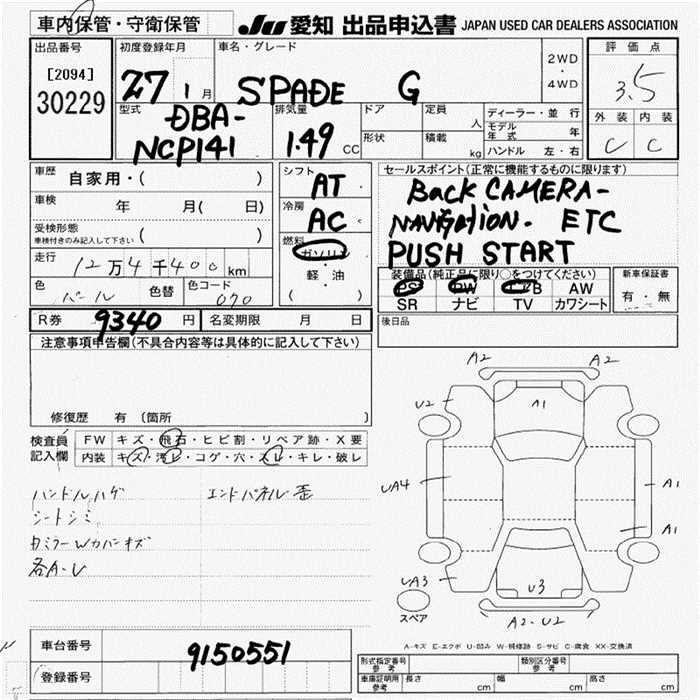 車内保管・守衛保管
JU 愛知 出品申込書 JAPAN USED CAR DEALERS ASSOCIATION
出品番号 初度登録年月 車名・グレード 2WD ・ 4WD 評価点
[2094] 30229
27 1月 SPADE G
3.5
型式 排気量 ドア 定員 人 ディーラー・並行
DBA-
NCP141
1.49 CC
形状 積載 kg
モデル年式 年
ハンドル 左・右
外装 内装
C C
車歴 自家用・( )
シフト AT
セールスポイント(正常に機能するものに限ります)
BACK CAMERA-
NAVIGATION. ETC
PUSH START
車検 年 月( 日)
冷房 AC
受検形態
車検付きのみ記入して下さい ( )
燃料 ガソリン
軽・油
( )
走行 12万4千400km
色 パール 色替 色コード 070
装備品(純正品に限り○をつけてください)
PS PW エアB AW
SR ナビ TV カワシート
新車保証書
有・無
R券 9340 円 名変期限 月 日
後日品
注意事項申告欄(不具合内容等は具体的に記入して下さい)
修復歴 有 (箇所
検査員記入欄
FW キズ・飛石・ヒビ割・リペア跡・X要
内装 キズ・汚レ・コゲ・穴・スレ・キレ・破レ
ハンドルハゲ エンドパネル歪
シートシミ
ミラーWカバーキズ
各A-U
A2 A2
U2 A1
UA4 A1
A1
UA3 U3
スペア
A2-U2
A-キズ E-エクボ U-凹み W-補修跡 S-サビ C-腐食 XX-交換済
車台番号 9150551
登録番号
型式指定番号 参考 類別区分番号 参考
車庫証明用 参考 長さ cm 幅 cm 高さ cm